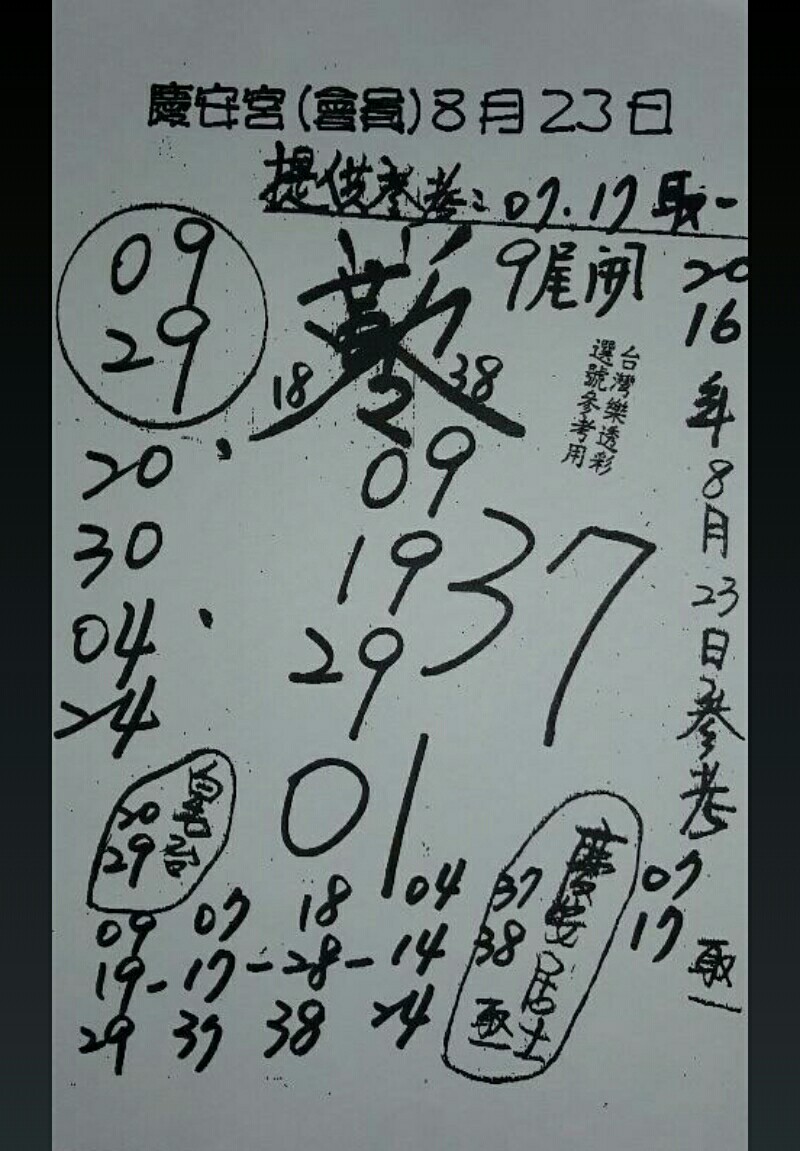 慶安宮(會員)8月23日
提供參考:07.17取一
9尾開
09
29
18
2
38
台灣樂透彩
選號參考用
2016年8月23日參考
07
17
取一
20
30
04
24
09
19
29
37
01
20
29
09 07 18 04
19-17-28-14
29 37 38 24
慶安居士
37
38
取一